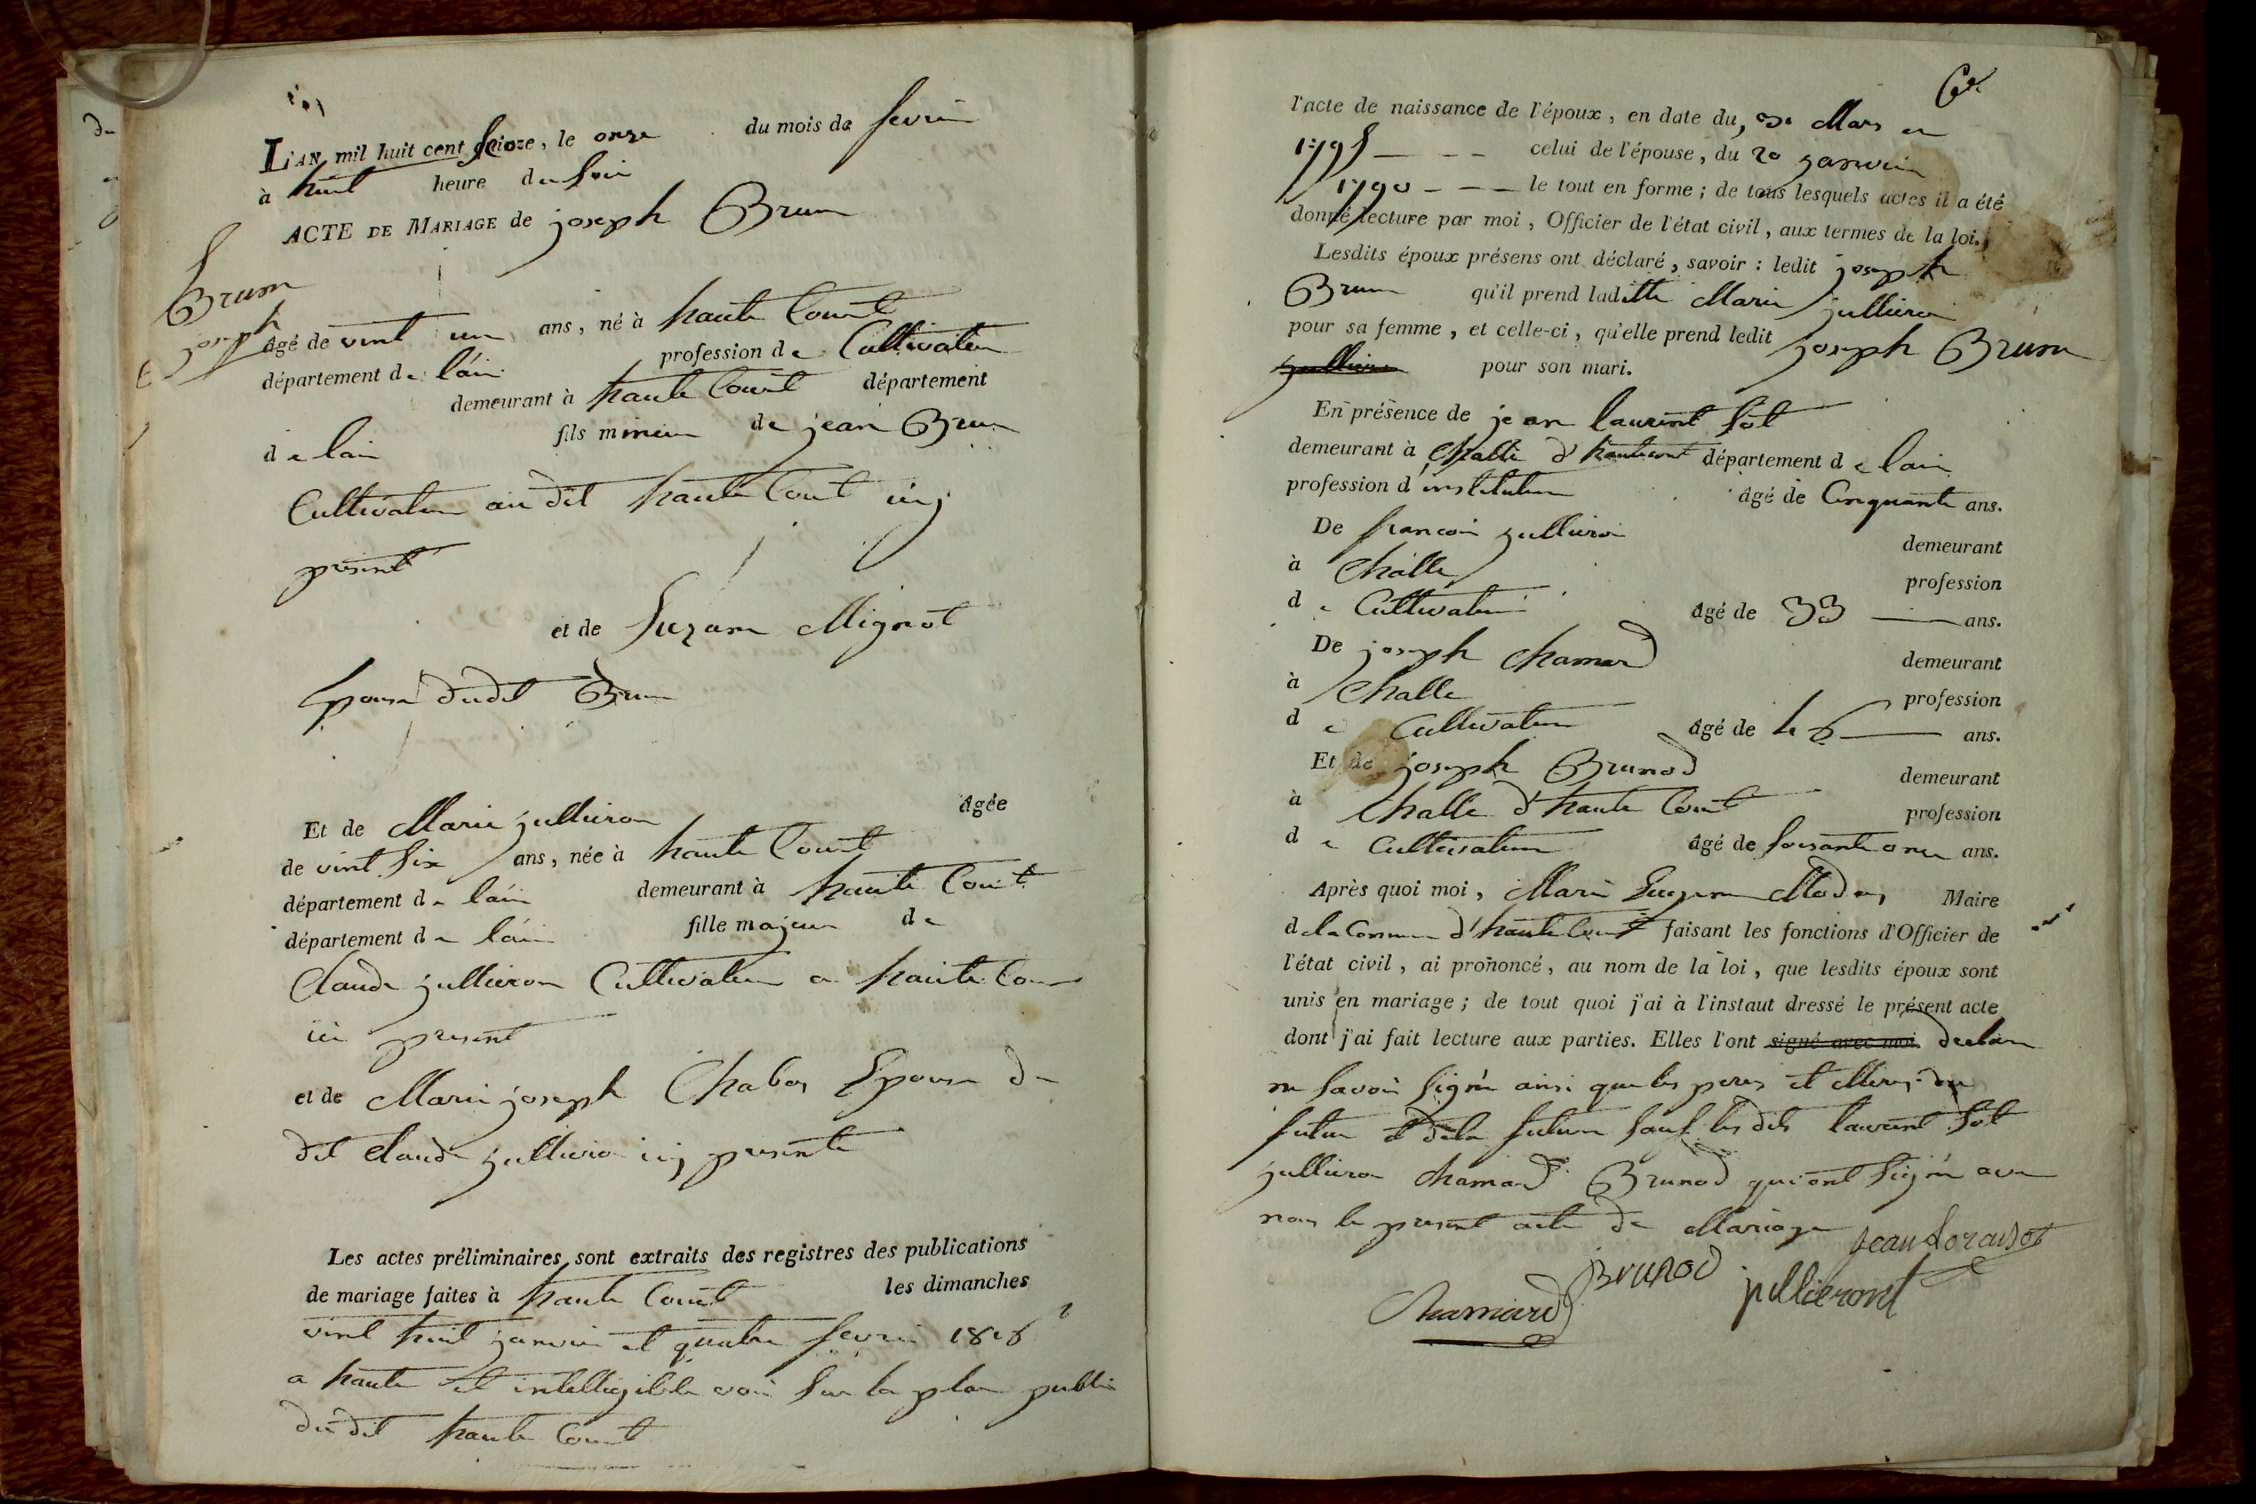 L'AN mil huit cent seize, le onze du mois de fevrie
à huit heure du soir
ACTE DE MARIAGE de joseph Brun
Brun
joseph
âgé de vint un ans, né à haute Court
département de l'ain profession de Cultivateur
demeurant à haute Court département
de lain fils mineur de jean Brun
Cultivateur au dit haute Court icy
présent
et de Suzane Mignot
Epouse dudit Brun
Et de Marie jullieron âgée
de vint six ans, née à haute Court
département de l'ain demeurant à haute Court
département de l'ain fille majeure de
Claude jullieron Cultivateur a haute Cour
ici present
et de Marie joseph Chabos Epouse du
dit Claude jullieron icy presente
Les actes préliminaires sont extraits des registres des publications
de mariage faites à haute Court les dimanches
vint huit janvier et quatre fevrier 1816
a haute et intelligible voix Sur la place public
du dit haute Court
l'acte de naissance de l'époux, en date du, 30 Mars en
1795 - - - celui de l'épouse, du 20 janvier
1790 - - - le tout en forme; de tous lesquels actes il a été
donné lecture par moi, Officier de l'état civil, aux termes de la loi.
Lesdits époux présens ont déclaré, savoir : ledit joseph
Brun qu'il prend laditte Marie jullieron
pour sa femme, et celle-ci, qu'elle prend ledit joseph Brun
jullieron pour son mari.
En présence de jean laurent Sot
demeurant à Challe d'hautecourt département de lain
profession d'instituteur âgé de Cinquante ans.
De francois jullieron demeurant
à Challe profession
de Cultivateur âgé de 33 ans.
De joseph chamard demeurant
à Challe profession
de Cultivateur âgé de 46 ans.
Et de joseph Brunod demeurant
à Challe d'haute Court profession
de Cultivateur âgé de soisante onze ans.
Après quoi moi, Marie Eugene Modas Maire
de la Commune d'haute Court faisant les fonctions d'Officier de
l'état civil, ai prononcé, au nom de la loi, que lesdits époux sont
unis en mariage; de tout quoi j'ai à l'instant dressé le présent acte
dont j'ai fait lecture aux parties. Elles l'ont signé avec moi declare
ne Savoir Signer ainsi que les peres et Meres du
futur et dela future sauf les dits laurent Sot
jullieron chamard Brunod qui ont Signé avec
nous le present acte de Mariage
jean Loran Sot
Brunod
jullieront
Chamard